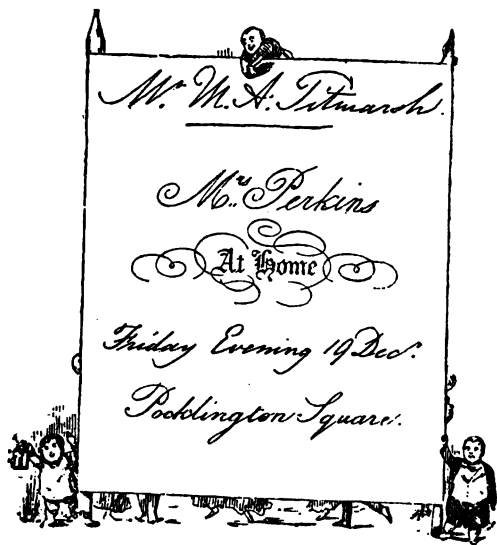 Mr. M. A. Titmarsh.
Mrs. Perkins
At Home
Friday Evening 19 Decr.
Pocklington Square.